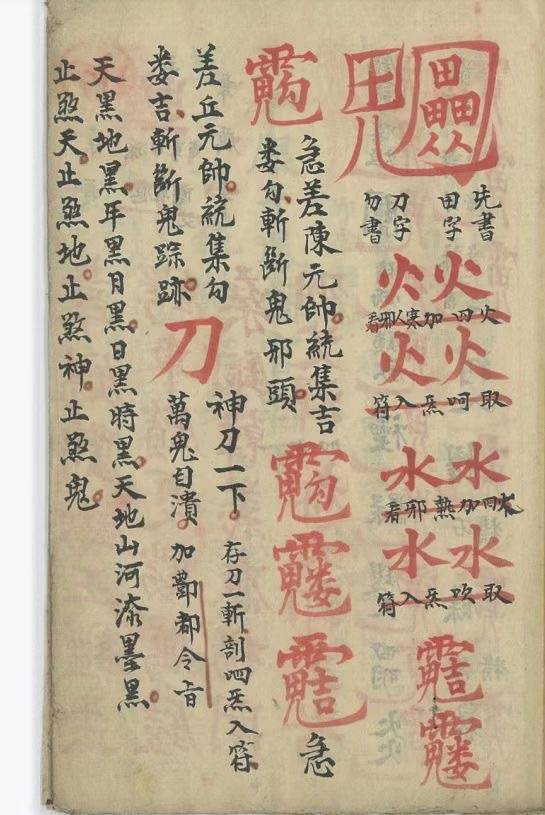 先書
田字
刀字
勿書
火火
火四加寒人邪看
火火
取呵炁入符
水水
水四加熱邪看
水水
取吹炁入符
急
急差陳元帥統集吉
娄勾斬斷鬼邪頭
差丘元帥統集勾
娄吉斬斷鬼踪跡
刀
神刀一下
存刀一斬剖四炁入符
萬鬼自潰
加酆都令旨
天黑地黑年黑月黑日黑時黑天地山河漆墨黑
止煞天止煞地止煞神止煞鬼